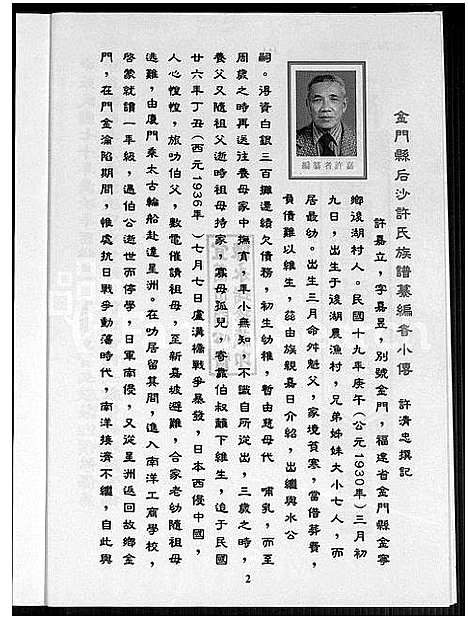 金門縣后沙許氏族譜纂編者小傳　許清忠撰記
許嘉立，字嘉昱，別號金門，福建省金門縣金寧
鄉浚湖村人。民國十九年庚午（公元1930年）三月初
九日，出生于浚湖農漁村，兄弟姊妹大小七人，而
居最幼。出生三月命舛魁父，家境貧寒，當借葬費，
負債難以維生，茲由族親嘉日介紹，出繼與水公
嗣。浯資白銀三百攤還積欠債務，初生幼稚，暫由慈母代　哺乳，而至
周歲之時再送往養母家中撫育，年小無知，不識自所從出，三歲之時，
養父又隨祖父逝時祖母持家，寡母孤兒寄靠伯叔籬下維生，迨于民國
廿六年丁丑（西元1936年）七月七日盧溝橋戰爭暴發，日本西侵中國，
人心惶惶，旅叻伯父，數電催請祖母，至新嘉坡避難，合家老幼隨祖母
逃難，由廈門乘太古輪船赴達星洲。在叻居留其間，進入南洋工商學校，
啓蒙就讀一年級，遇伯公逝世而停學，日軍南侵，又從星洲返回故鄉金
門，在門金淪陷期間，惟處抗日戰爭動蕩時代，南洋接濟不繼，自此與
編纂者許嘉
2